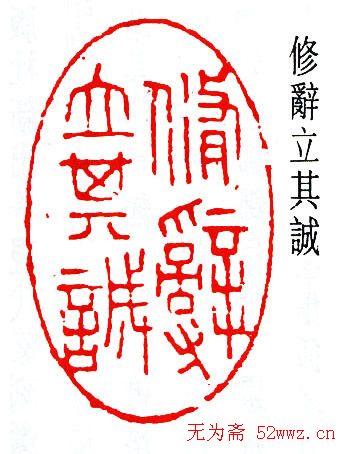 修辭立其誠
脩辭
立其誠
无为斋 52wwz.cn